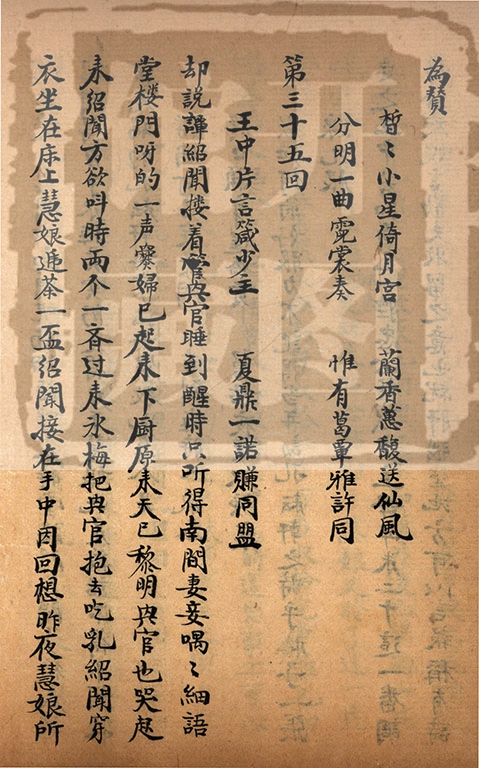 為贊
暂〻小星倚月宫　蘭香蕙馥送仙風
分明一曲霓裳奏　惟有葛覃雅許同
第三十五回
王中片言箴少主　夏鼎一諾賺同盟
却說譚紹聞摟着興官睡到醒時只听得南間妻妾喁〻細語
堂楼門呀的一声爨婦已起来下厨原来天已黎明興官也哭起
来紹聞方欲呌時両个一斉过来冰梅把興官抱去吃乳紹聞穿
衣坐在床上慧娘逓茶一盃紹聞接在手中因回想昨夜慧娘所